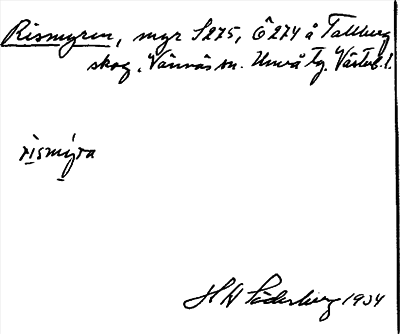 Rismyren, myr S275, Ö274 å Tallberg
skog, Vännäs sn. Umeå tg. Västerb. l.
rismýra
H A Söderberg 1934